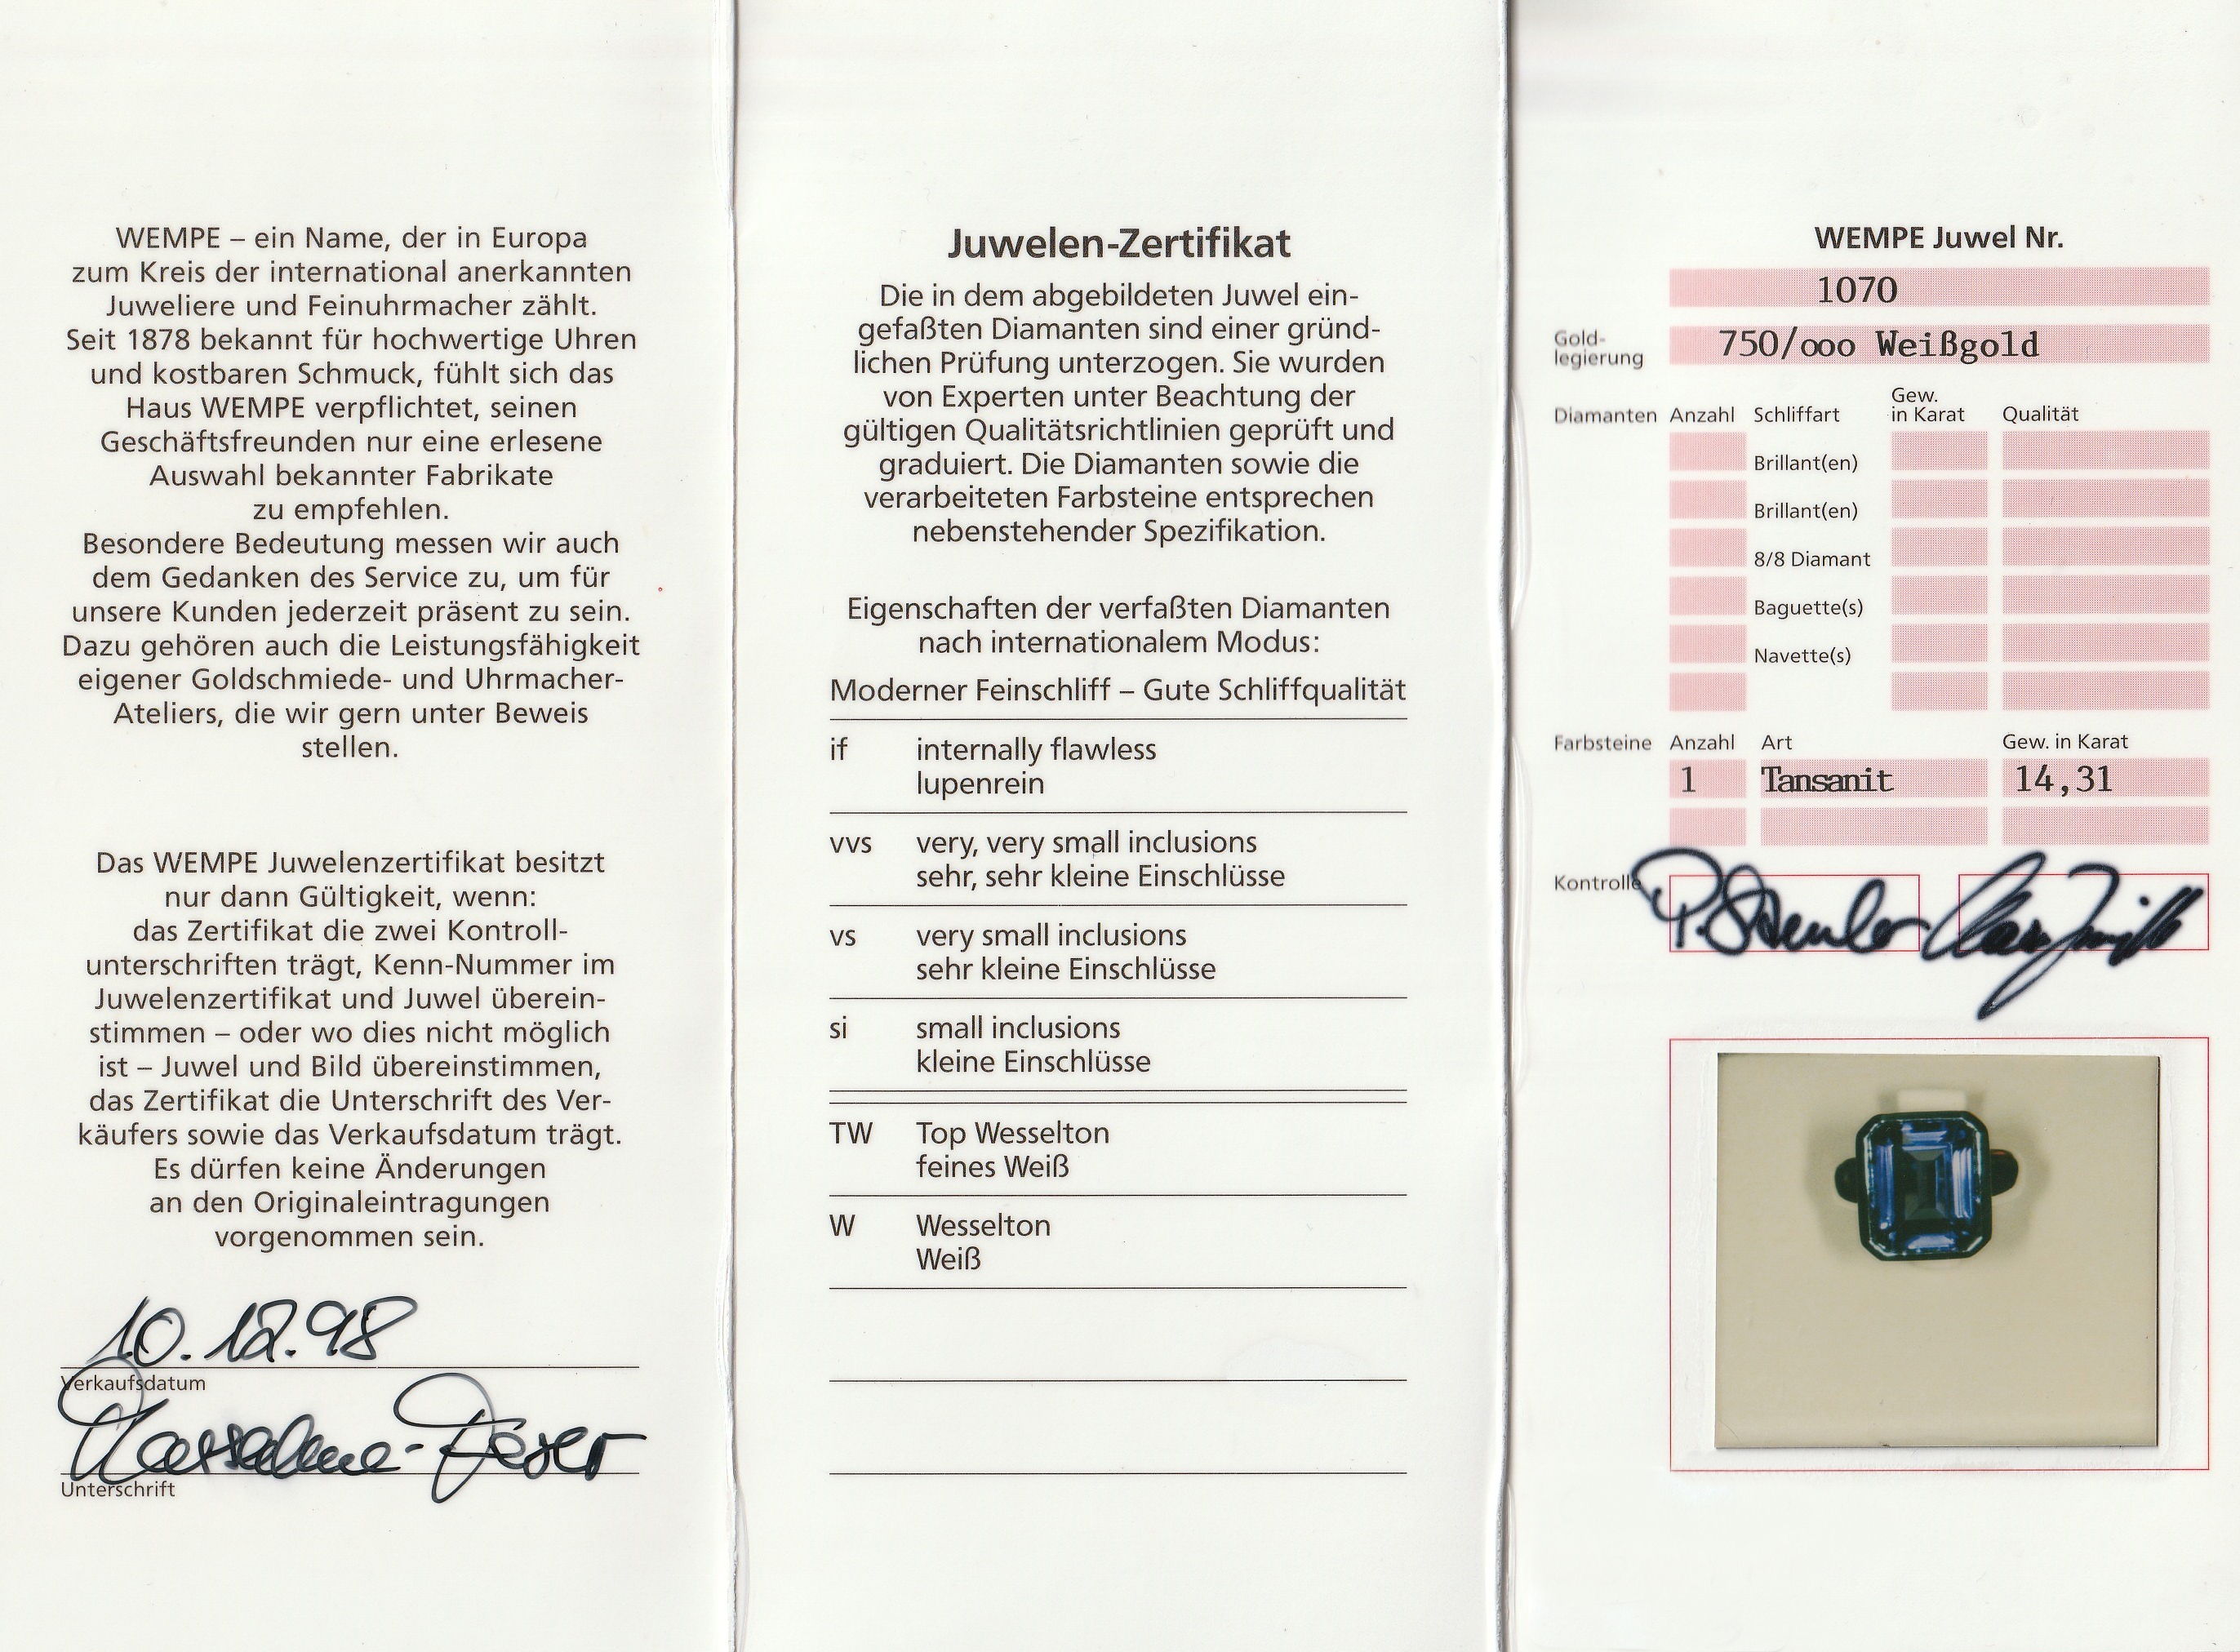 WEMPE – ein Name, der in Europa
zum Kreis der international anerkannten
Juweliere und Feinuhrmacher zählt.
Seit 1878 bekannt für hochwertige Uhren
und kostbaren Schmuck, fühlt sich das
Haus WEMPE verpflichtet, seinen
Geschäftsfreunden nur eine erlesene
Auswahl bekannter Fabrikate
zu empfehlen.
Besondere Bedeutung messen wir auch
dem Gedanken des Service zu, um für
unsere Kunden jederzeit präsent zu sein.
Dazu gehören auch die Leistungsfähigkeit
eigener Goldschmiede- und Uhrmacher-
Ateliers, die wir gern unter Beweis
stellen.
Das WEMPE Juwelenzertifikat besitzt
nur dann Gültigkeit, wenn:
das Zertifikat die zwei Kontroll-
unterschriften trägt, Kenn-Nummer im
Juwelenzertifikat und Juwel überein-
stimmen – oder wo dies nicht möglich
ist – Juwel und Bild übereinstimmen,
das Zertifikat die Unterschrift des Ver-
käufers sowie das Verkaufsdatum trägt.
Es dürfen keine Änderungen
an den Originaleintragungen
vorgenommen sein.
10.12.98
Verkaufsdatum
Unterschrift
Juwelen-Zertifikat
Die in dem abgebildeten Juwel ein-
gefaßten Diamanten sind einer gründ-
lichen Prüfung unterzogen. Sie wurden
von Experten unter Beachtung der
gültigen Qualitätsrichtlinien geprüft und
graduiert. Die Diamanten sowie die
verarbeiteten Farbsteine entsprechen
nebenstehender Spezifikation.
Eigenschaften der verfaßten Diamanten
nach internationalem Modus:
Moderner Feinschliff – Gute Schliffqualität
if internally flawless
lupenrein
vvs very, very small inclusions
sehr, sehr kleine Einschlüsse
vs very small inclusions
sehr kleine Einschlüsse
si small inclusions
kleine Einschlüsse
TW Top Wesselton
feines Weiß
W Wesselton
Weiß
WEMPE Juwel Nr.
1070
Gold-
legierung 750/ooo Weißgold
Diamanten Anzahl Schliffart Gew.
in Karat Qualität
Brillant(en)
Brillant(en)
8/8 Diamant
Baguette(s)
Navette(s)
Farbsteine Anzahl Art Gew. in Karat
1 Tansanit 14,31
Kontrolle